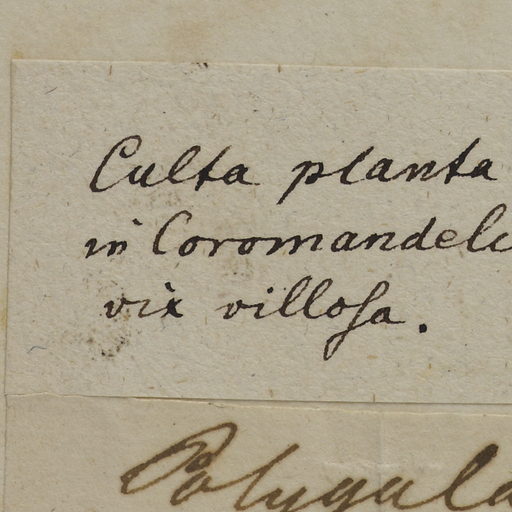 Culta planta
in Coromandel
vix villoſa.
Polygala